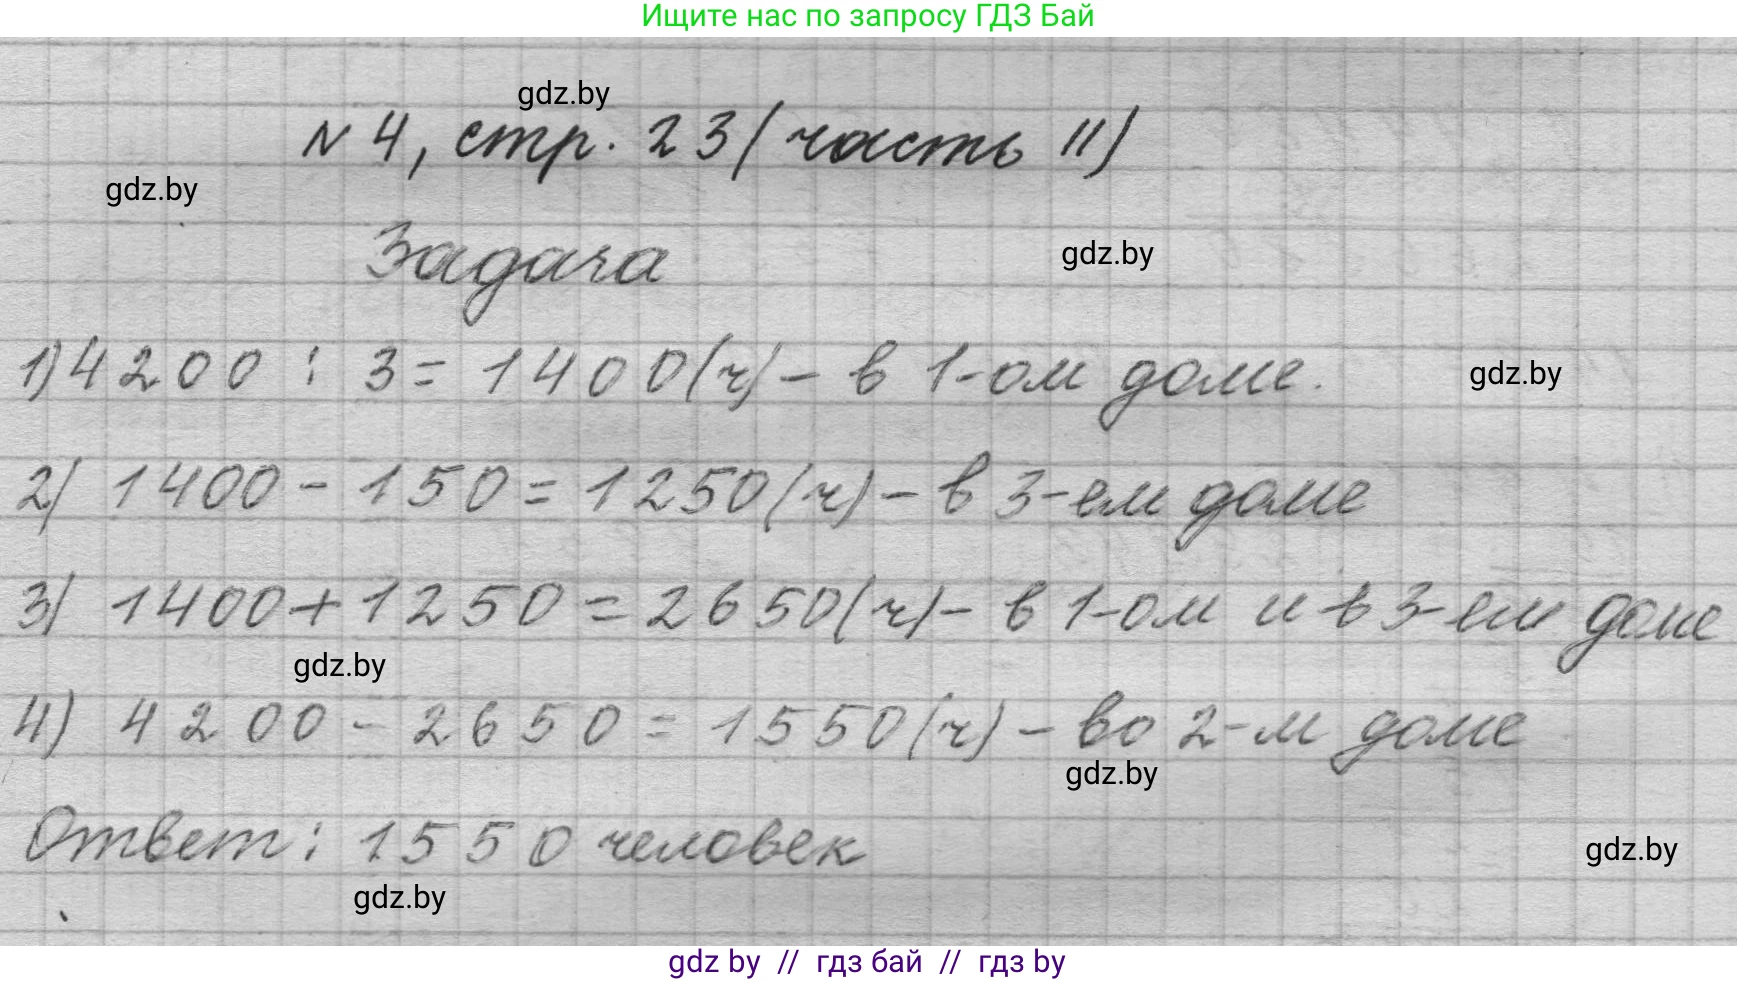 Ищите нас по запросу ГДЗ Бай
gdz.by
N 4, стр. 23 (часть II)
gdz.by
Задача
gdz.by
1) 4200 : 3 = 1400 (ч) - в 1-ом доме.
gdz.by
2) 1400 - 150 = 1250 (ч) - в 3-ем доме
3) 1400 + 1250 = 2650 (ч) - в 1-ом и в 3-ем доме
gdz.by
4) 4200 - 2650 = 1550 (ч) - во 2-м доме
gdz.by
Ответ: 1550 человек
gdz.by
gdz.by
gdz by // гдз бай // гдз by